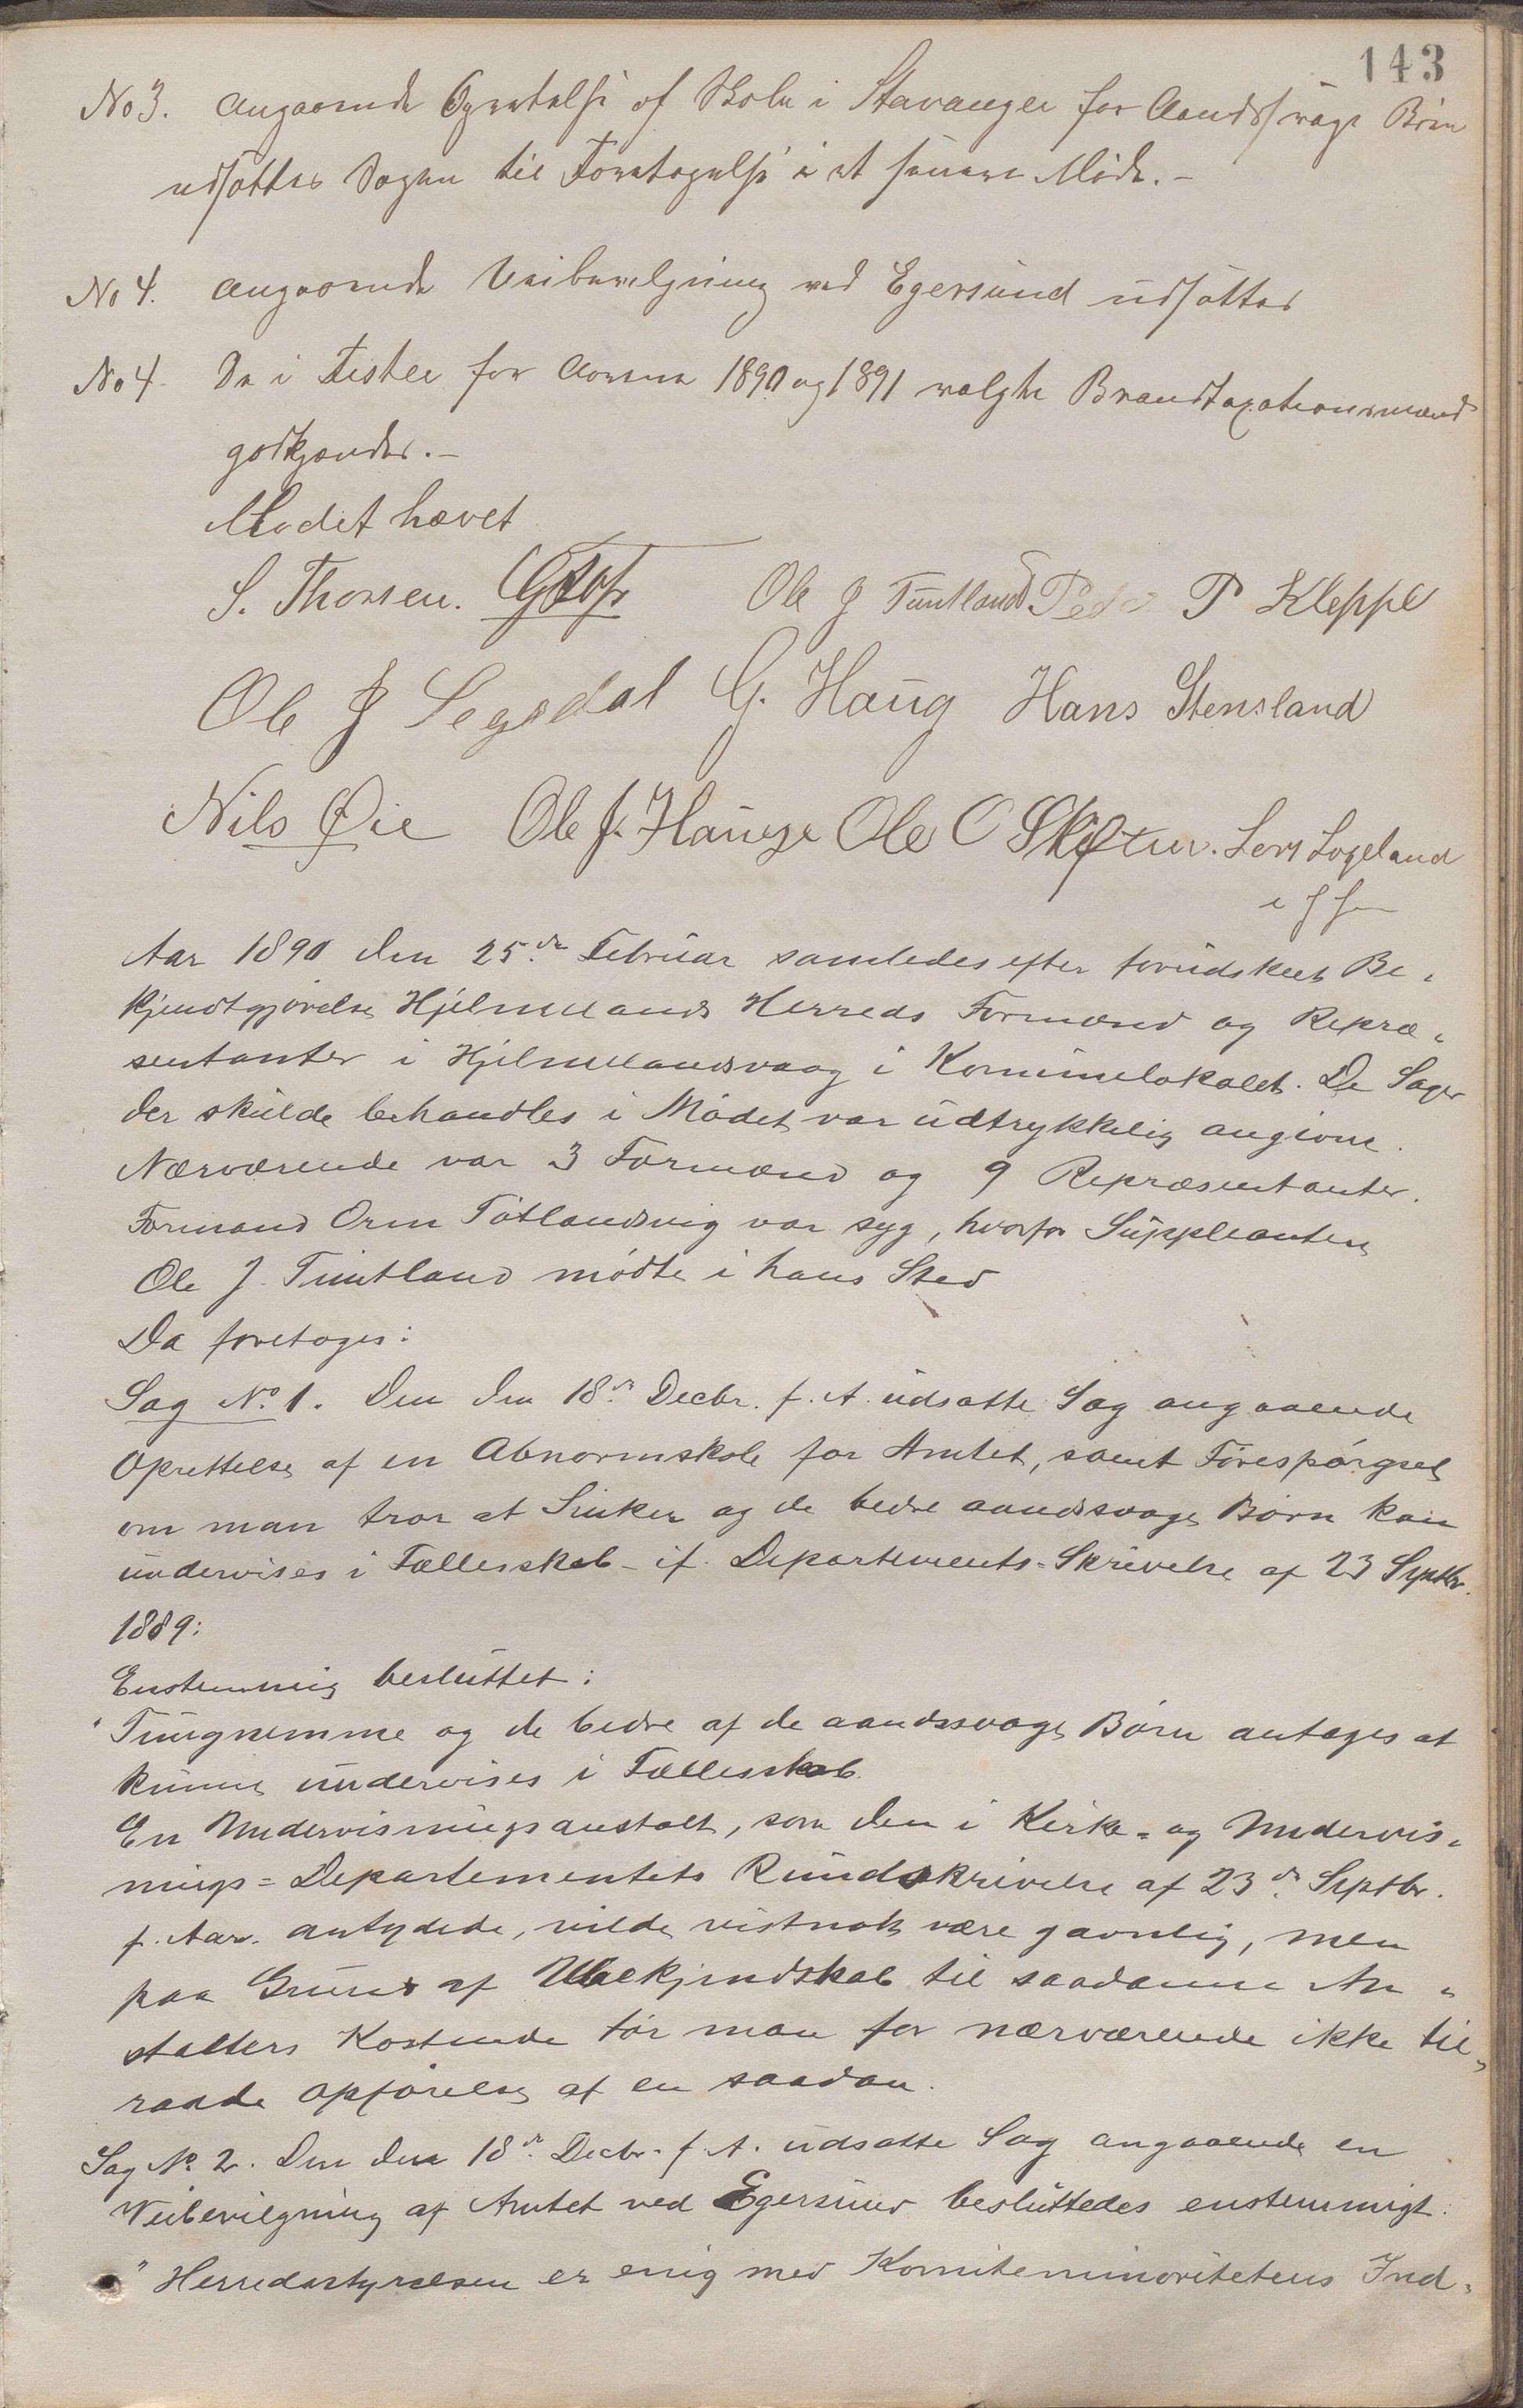 143
No 3. angaaende Oprettelse af Skole i Stavanger for Aandssvage Børn
udsættes Sagen til Foretagelse i et senere Møde. -
No 4. angaaende Veibevilgning ved Egersund udsættes
No 4. De i Fister for Aarene 1890 og 1891 valgte Brandtaxationsmænd
godkjendes. -
Mødet hævet
S. Thorsen. Ole J Tuntland Peder P Kleppe
Ole J Segadal G. Haug Hans Stensland
Nils Øie Ole J. Hauge Ole O Skiftun. Lars Lageland
Aar 1890 den 25de Februar samledes efter forudskeet Be-
kjendtgjørelse Hjelmelands Herreds Formænd og Repræ-
sentanter i Hjelmelandsvaag i Kommunelokalet. De Sager
der skulde behandles i Mødet var udtrykkelig angivne.
Nærværende var 3 Formænd og 9 Repræsentanter.
Formand Orm Tøtlandsvig var syg, hvorfor Suppleanten
Ole J. Tuntland mødte i hans Sted
Da foretoges:
Sag No. 1. Den den 18de Decbr. f. A. udsatte Sag angaaende
Oprettelse af en Abnormskole for Amtet, samt Forespørgsel
om man tror at Sinker og de bedre aandssvage Børn kan
undervises i Fællesskab - jf. Departements-Skrivelse af 23 Septbr.
1889:
Enstemmig besluttet:
"Tungnemme og de bedre af de aandssvage Børn antages at
kunne undervises i Fællesskab.
En Undervisningsanstalt, som den i Kirke- og Undervis-
nings-Departementets Rundskrivelse af 23de Septbr.
f. Aar. antydede, vilde vistnok være gavnlig, men
paa Grund af Ubekjendskab til saadanne An-
stalters Kostende tør man for nærværende ikke til-
raade Opførelse af en saadan.
Sag No. 2. Den den 18de Decbr. f. A. udsatte Sag angaaende en
Veibevilgning af Amtet ved Egersund besluttedes enstemmigt:
"Herredsstyrelsen er enig med Komiteminoritetens Ind-